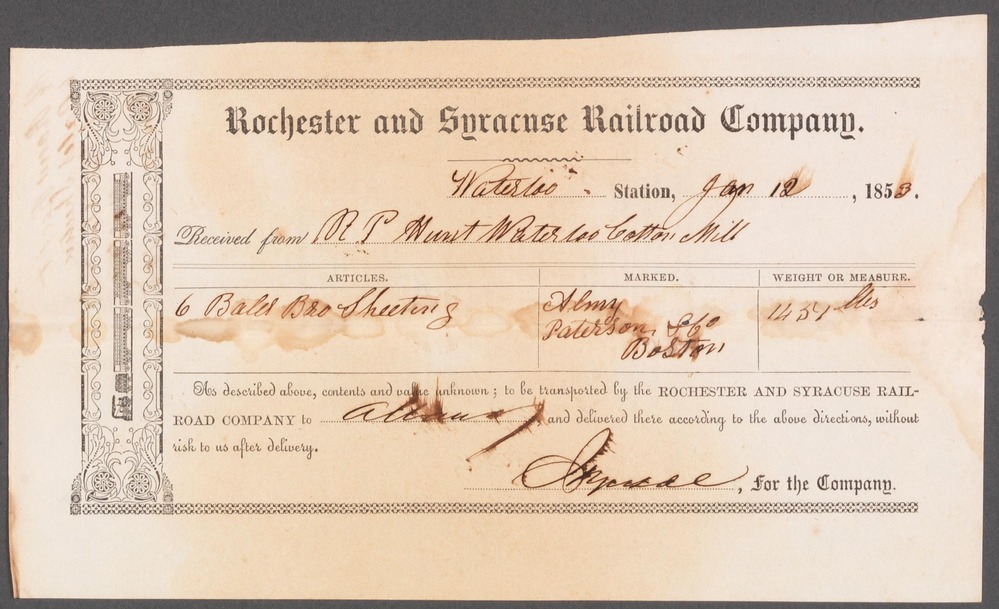 Rochester and Syracuse Railroad Company.
Waterloo Station, Jan 12, 1853.
Received from R P Hunt Waterloo Cotton Mill
ARTICLES. MARKED. WEIGHT OR MEASURE.
6 Bals Bro Sheeting Almy 1451 lbs
Paterson, & Co
Boston
As described above, contents and value unknown; to be transported by the ROCHESTER AND SYRACUSE RAIL-
ROAD COMPANY to Albany and delivered there according to the above directions, without
risk to us after delivery.
, For the Company.